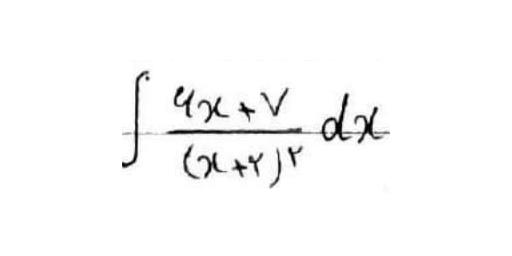 ∫ (۶x + ۷)/(x+۲)^۲ dx